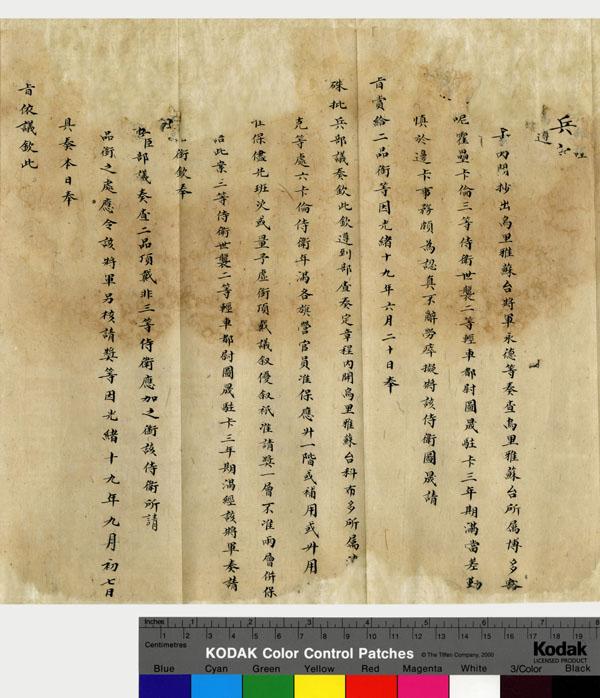 兵部
遵
内閣抄出烏里雅蘇台將軍永德等奏查烏里雅蘇台所属博多豁
呢霍壘卡倫三等侍衛世襲二等輕車都尉圖晟駐卡三年期滿當差勤
慎於邊卡事務頗為認真不辭勞瘁擬將該侍衛圖晟請
旨賞給二品銜等因光緒十九年六月二十日奉
硃批兵部議奏欽此欽遵到部查奏定章程内開烏里雅蘇台科布多所属
克等處六卡倫侍衛年滿各旗營官員准保應升一階或補用或升用
保儘先班次或量予虚銜頂戴議叙優叙祇准請獎一層不准兩層併保
此案三等侍衛世襲二等輕車都尉圖晟駐卡三年期滿經該將軍奏請
銜欽奉
臣部議奏查二品頂戴非三等侍衛應加之銜該侍衛所請
品銜之處應令該將軍另核請獎等因光緒十九年九月初七日
具奏本日奉
旨依議欽此
Inches 1 2 3 4 5 6 7 8
Centimetres 1 2 3 4 5 6 7 8 9 10 11 12 13 14 15 16 17 18 19
KODAK Color Control Patches
© The Tiffen Company, 2000
Kodak
LICENSED PRODUCT
Blue Cyan Green Yellow Red Magenta White 3/Color Black